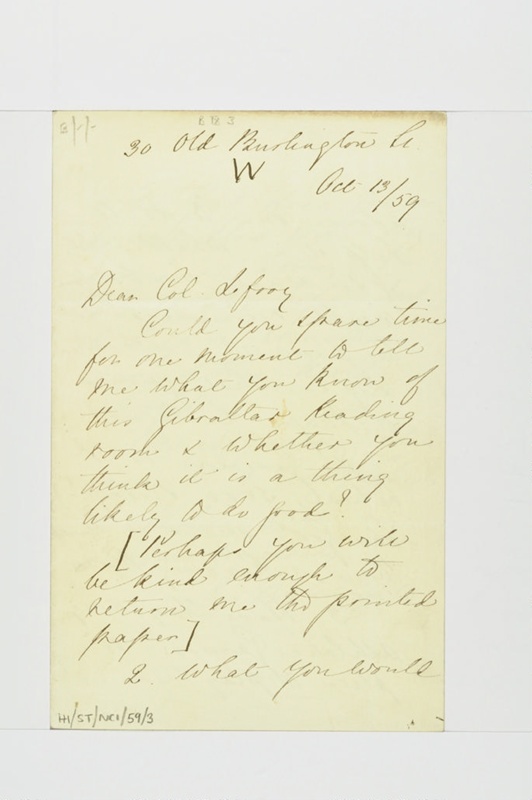 30 Old Burlington St
W
Oct 13/59
Dear Col. Lefroy
Could you spare time
for one moment to tell
me what you know of
this Gibraltar Reading
room & whether you
think it is a thing
likely to do good?
[Perhaps you will
be kind enough to
return me the printed
paper]
2. What you would
H1/ST/NC1/59/3